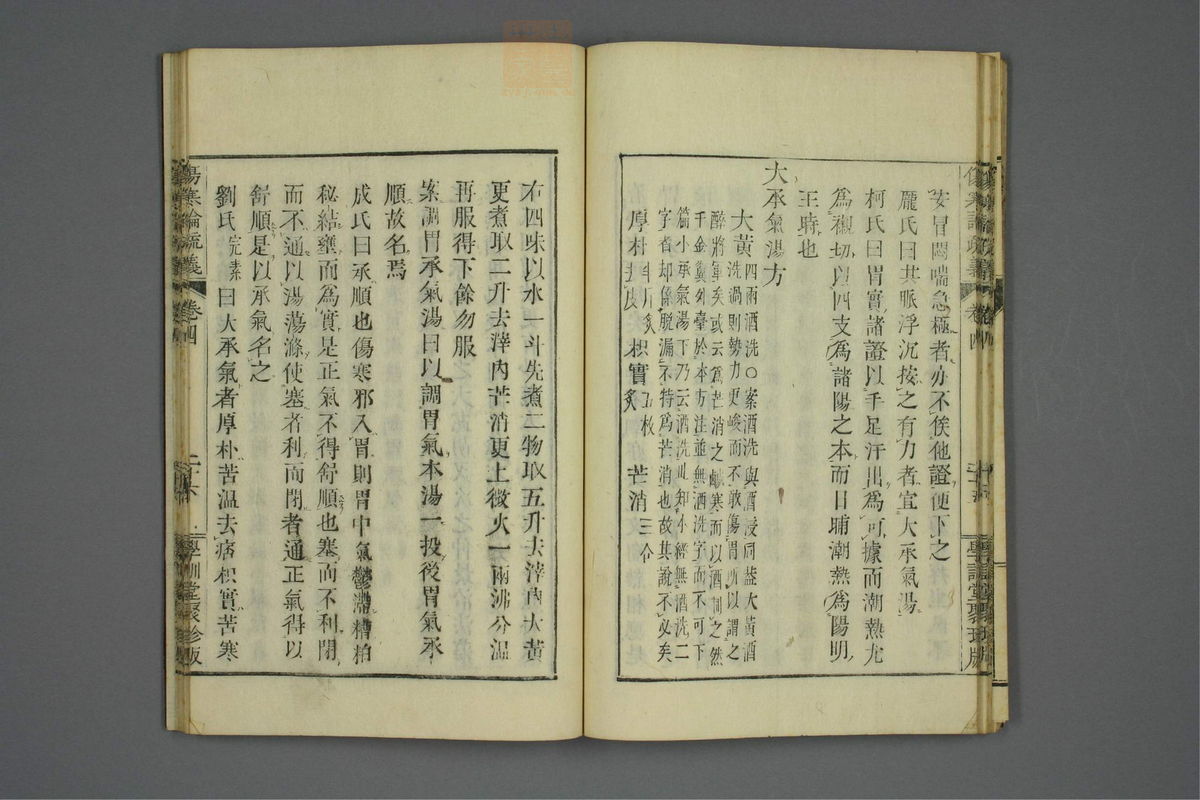 妄冒悶喘急極者亦不俟他證便下之
龐氏曰其脈浮沉按之有力者宜大承氣湯
柯氏曰胃實諸證以手足汗出爲可據而潮熱尤
爲襯切以四支爲諸陽之本而日晡潮熱爲陽明
王時也
大承氣湯方
大黃四兩酒洗○案酒洗與酒浸同葢大黃酒
洗過則勢力更峻而不敢傷胃所以謂之
醉將軍矣或云爲芒消之鹹寒而以酒制之然
千金翼外臺於本方法並無酒洗字而不可下
篇小承氣湯下乃云酒洗此知小經無酒洗二
字者却係脫漏不特爲芒消也故其說不必矣
厚朴半斤炙去皮 枳實五枚炙 芒消三合
右四味以水一斗先煮二物取五升去滓內大黃
更煮取二升去滓內芒消更上微火一兩沸分溫
再服得下餘勿服
案調胃承氣湯曰以調胃氣本湯一投後胃氣承
順故名焉
成氏曰承順也傷寒邪入胃則胃中氣鬱滯糟粕
秘結壅而爲實是正氣不得舒順也塞而不利閉
而不通以湯蕩滌使塞者利而閉者通正氣得以
舒順是以承氣名之
劉氏完素曰大承氣者厚朴苦温去痞枳實苦寒
傷寒論疏義 卷四 二十六 學訓堂聚珍版